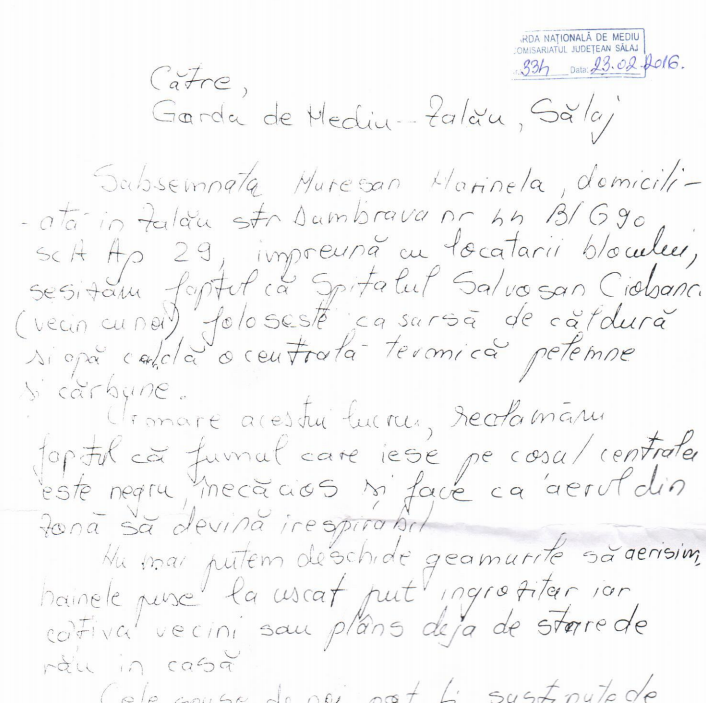 RDA NAȚIONALĂ DE MEDIU
COMISARIATUL JUDEȚEAN SĂLAJ
334 Data: 23.02.2016.
Către,
Garda de Mediu - Zalău, Sălaj
Subsemnata Muresan Marinela, domicili-
-ată in Zalău str Dumbrava nr 44 Bl G90
sc A Ap 29, impreună cu locatarii blocului,
sesizăm faptul că Spitalul Salvosan Ciobanca
(vecin cu noi) foloseste ca sursă de căldură
si apă caldă o centrală termică pe lemne
si cărbune.
Urmare acestui lucru, reclamăm
faptul că fumul care iese pe cosul centralei
este negru, inecăcios si face ca aerul din
zonă să devină irespirabil
Nu mai putem deschide geamurile să aerisim,
hainele puse la uscat put ingrozitor iar
cațiva vecini sau plâns deja de stare de
rău in casă
Cele spuse de noi pot fi sustinute de